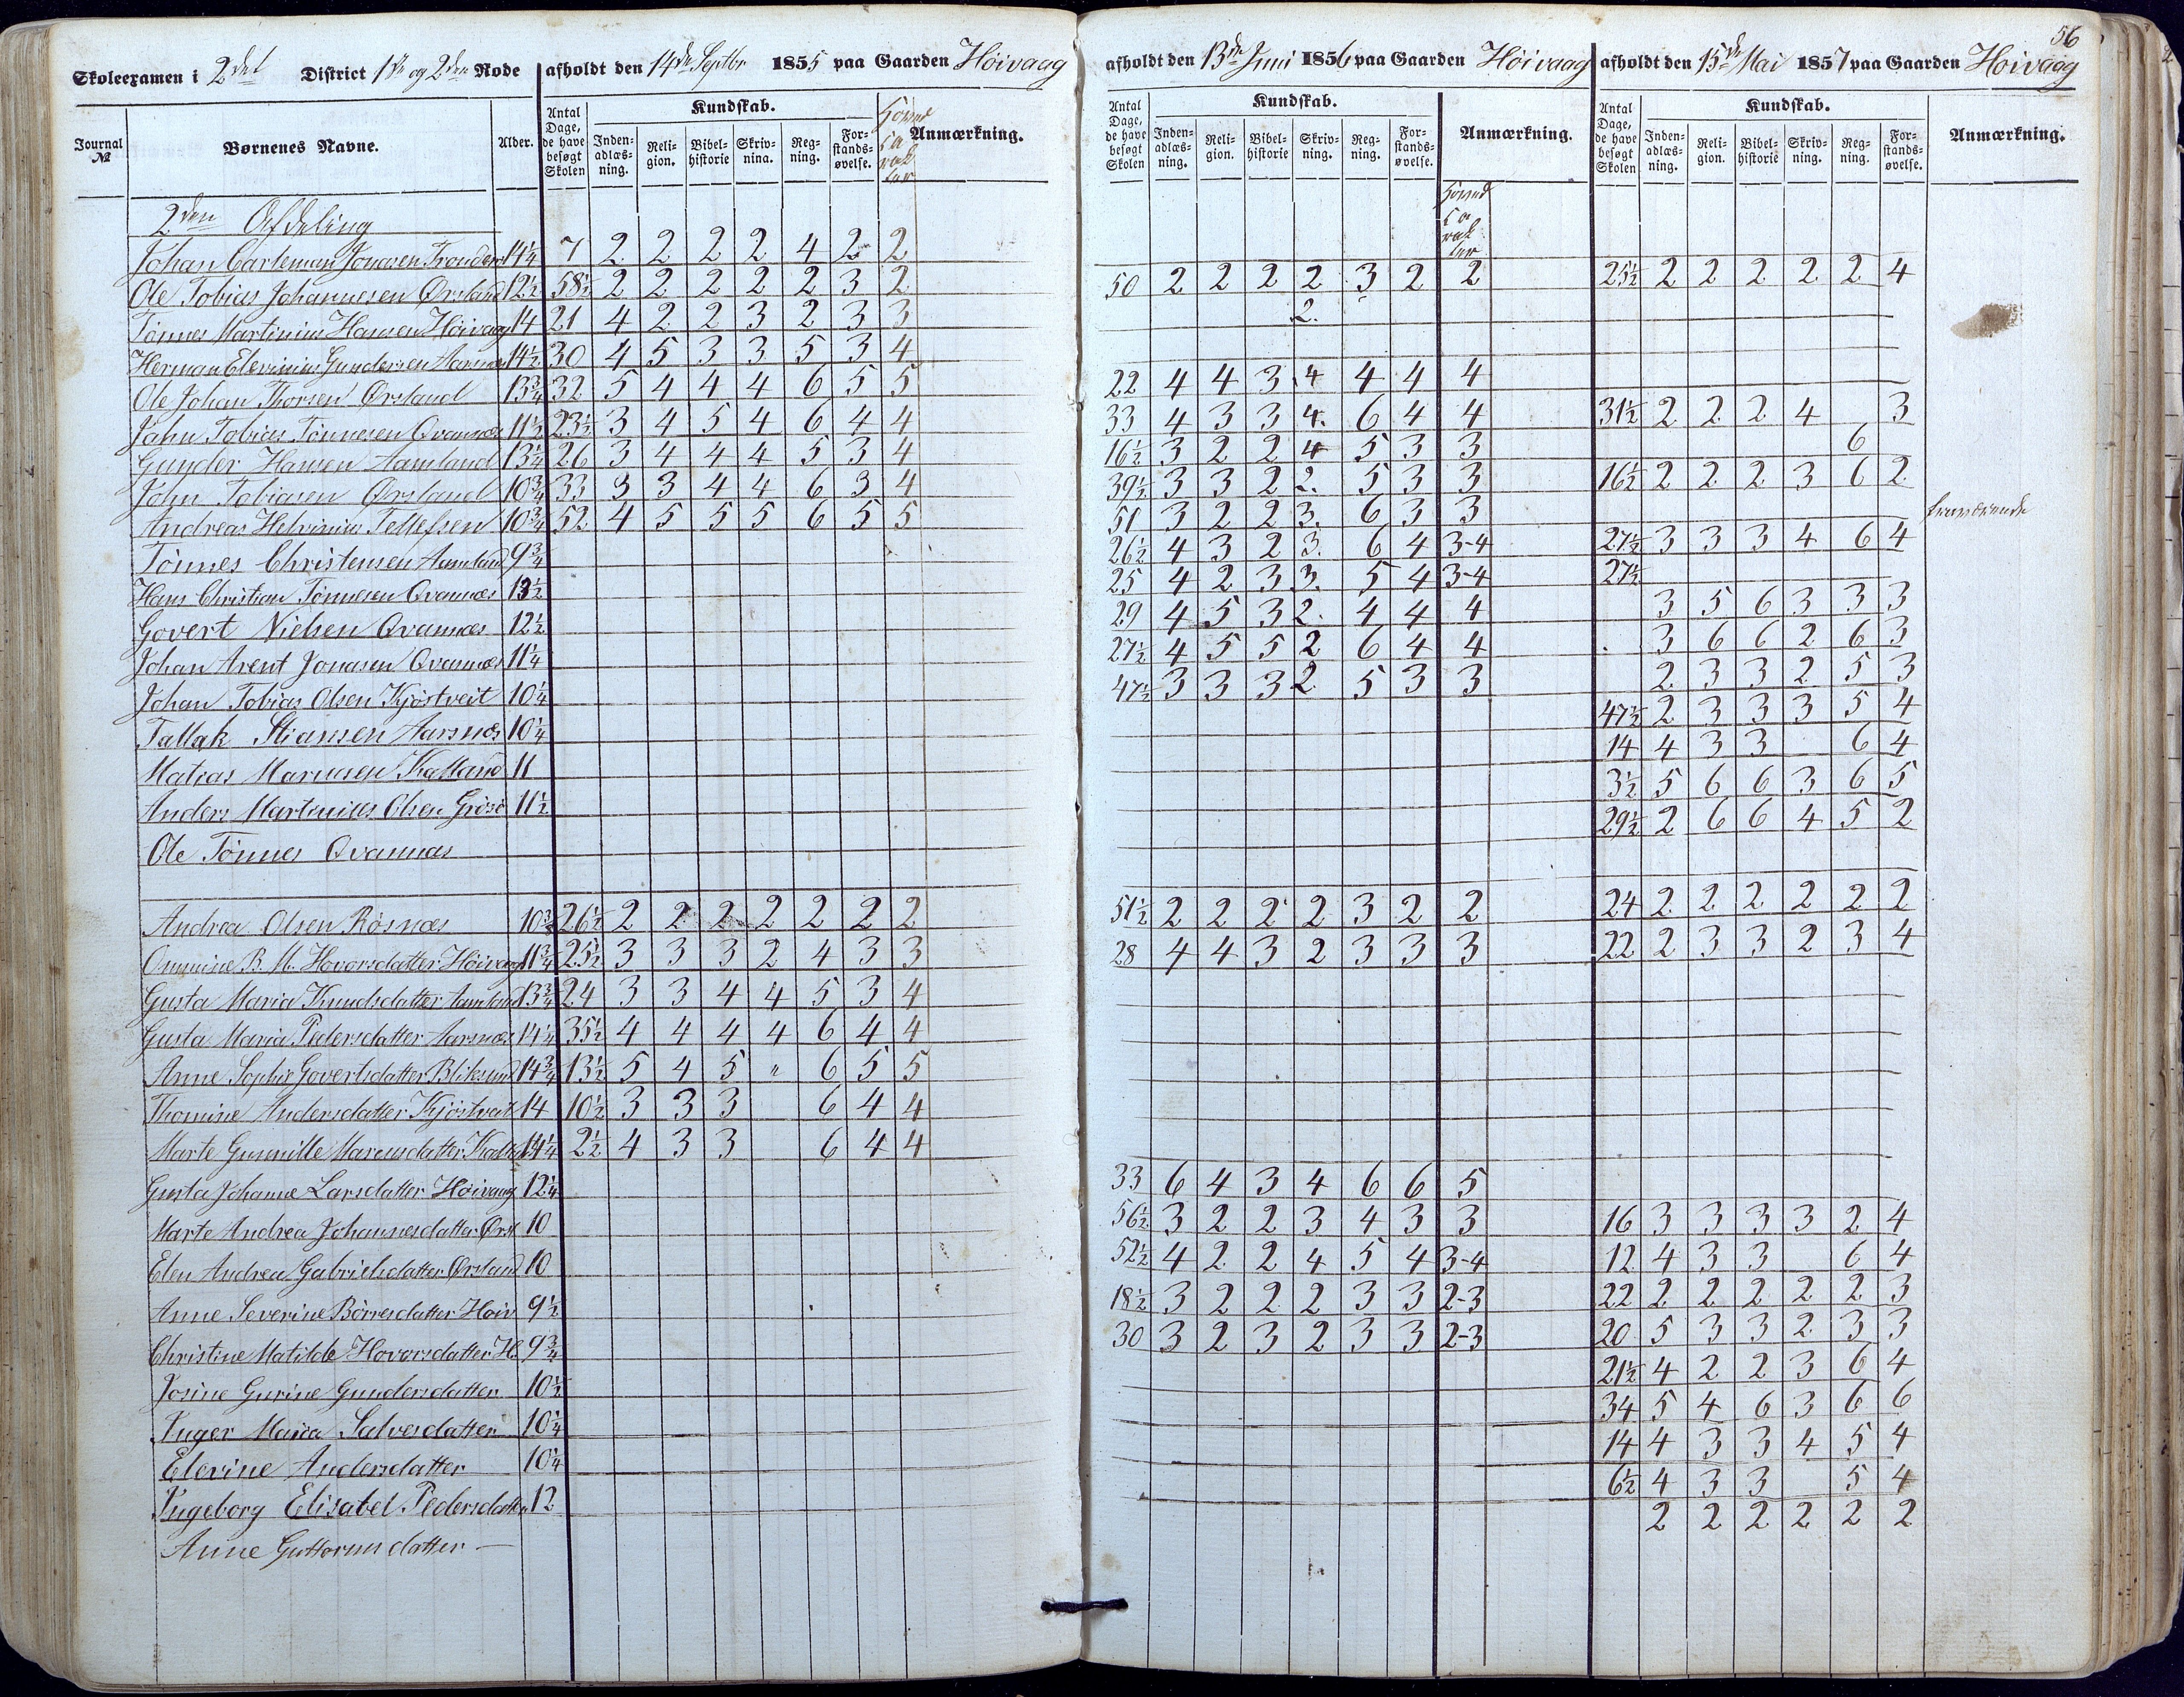 56
Skoleexamen i 2det District 1ste og 2den Rode afholdt den 14de Septbr 1855 paa Gaarden Höivaag afholdt den 13de Juni 1856 paa Gaarden Höivaag afholdt den 15de Mai 1857 paa Gaarden Höivaag
Journal № Børnenes Navne. Alder. Antal Dage, de have besøgt Skolen Kundskab. Inden-adlæs-ning. Reli-gion. Bibel-historie Skriv-nina. Reg-ning. For-stands-øvelse. Hoved Ca rak ter Anmærkning. Antal Dage, de have besøgt Skolen Kundskab. Inden-adlæs-ning. Reli-gion. Bibel-historie Skriv-ning. Reg-ning. For-stands-øvelse. Anmærkning. Hoved Ca rak ter Antal Dage, de have besøgt Skolen Kundskab. Inden-adlæs-ning. Reli-gion. Bibel-historie Skriv-ning. Reg-ning. For-stands-øvelse. Anmærkning.
2den Afdeling
Johan Carlemann Jonasen 14¼ 7 2 2 2 2 4 2 2
Ole Tobias Johannesen Ørsland 12½ 58½ 2 2 2 2 2 3 2 50 2 2 2 2 3 2 2 25½ 2 2 2 2 2 4
Tönnes Martinius Hansen Höivaag 14 21 4 2 2 3 2 3 3 2.
Herman Elevinius Gundersen 14½ 30 4 5 3 3 5 3 4
Ole Johan Thorsen Ørsland 13¾ 32 5 4 4 4 6 5 5 22 4 4 3 4 4 4 4
Jahn Tobias Tönnesen Qvannæs 11½ 23½ 3 4 5 4 6 4 4 33 4 3 3 4. 6 4 4 31½ 2 2 2 4 3
Gunder Hansen Aamland 13¼ 26 3 4 4 4 5 3 4 16½ 3 2 2 4 5 3 3 6
John Tobiasen Ørsland 10¾ 33 3 3 4 4 6 3 4 39½ 3 3 2 2. 5 3 3 16½ 2 2 2 3 6 2
Andreas Helvinius Tellefsen 10¾ 52 4 5 5 5 6 5 5 51 3 2 2 3. 6 3 3 fraværende
Tönnes Christensen Aamland 9¾ 26½ 4 3 2 3. 6 4 3-4 27½ 3 3 3 4 6 4
Hans Christian Tönnesen Qvannæs 13½ 25 4 2 3 3. 5 4 3-4 27½
Govert Nielsen Qvannæs 12½ 29 4 5 3 2. 4 4 4 3 5 6 3 3 3
Johan Arent Jonasen Qvannæs 11¼ 27½ 4 5 5 2 6 4 4 3 6 6 2 6 3
Johan Tobias Olsen Kjöstveit 10¼ 47½ 3 3 3 2. 5 3 3 2 3 3 2 5 3
Tallak Stiansen Aarsnæs 10¼ 47½ 2 3 3 3 5 4
Matias Marcusen Kalland 11 14 4 3 3 6 4
Anders Martinius Olsen 11½ 3½ 5 6 6 3 6 5
Ole Tönnes Qvannæs 29½ 2 6 6 4 5 2
Andrea Olsen Rösnæs 10¾ 26½ 2 2 2 2 2 2 2 51½ 2 2 2 2 3 2 2 24 2 2 2 2 2 2
B. M. Hovorsdatter Höivaag 11¾ 25½ 3 3 3 2 4 3 3 28 4 4 3 2 3 3 3 22 2 3 3 2 3 4
Gusta Maria Knudsdatter Aamland 13¾ 24 3 3 4 4 5 3 4
Gusta Maria Pedersdatter Aarsnæs 14¼ 35½ 4 4 4 4 6 4 4
Anne Sophie Govertsdatter Bliksund 14¾ 13½ 5 4 5 " 6 5 5
Thomine Andersdatter Kjöstveit 14 10½ 3 3 3 6 4 4
Marte Gunnille Marcusdatter 14¼ 2½ 4 3 3 6 4 4
Gusta Johanne Larsdatter Höivaag 12¼ 33 6 4 3 4 6 6 5
Marte Andrea Johannesdatter Ørsl 10 56½ 3 2 2 3 4 3 3 16 3 3 3 3 2 4
Elen Andrea Gabrielsdatter Ørsland 10 52½ 4 2 2 4 5 4 3-4 12 4 3 3 6 4
Anne Severine Börresdatter Höiv 9½ 18½ 3 2 2 2 3 3 2-3 22 2 2 2 2 2 3
Christine Matilde Hovorsdatter H. 9¾ 30 3 2 3 2 3 3 2-3 20 5 3 3 2 3 3
Josine Gurine Gundersdatter 10½ 21½ 4 2 2 3 6 4
Inger Maria Salvesdatter 10¼ 34 5 4 6 3 6 6
Elevine Andersdatter 10¼ 14 4 3 3 4 5 4
Ingeborg Elisabet Pedersdatter 12 6½ 4 3 3 5 4
Anne Guttormsdatter — 2 2 2 2 2 2